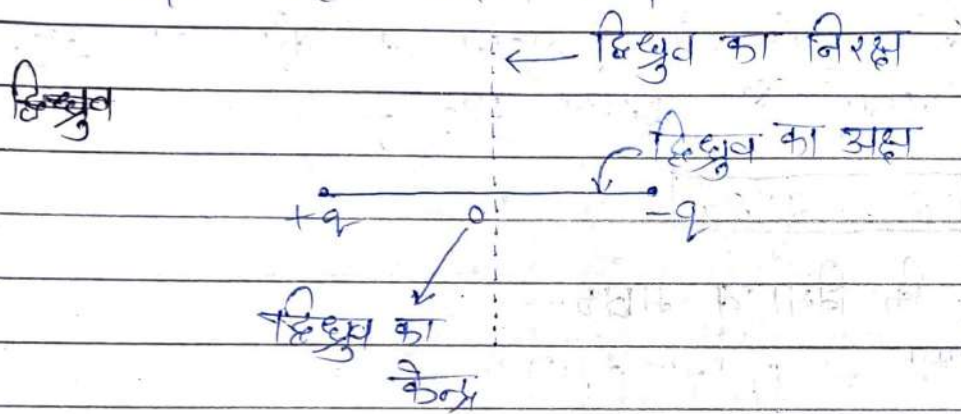 ← द्विध्रुव का निरक्ष
द्विध्रुव
द्विध्रुव का अक्ष
+q O -q
द्विध्रुव का
केन्द्र